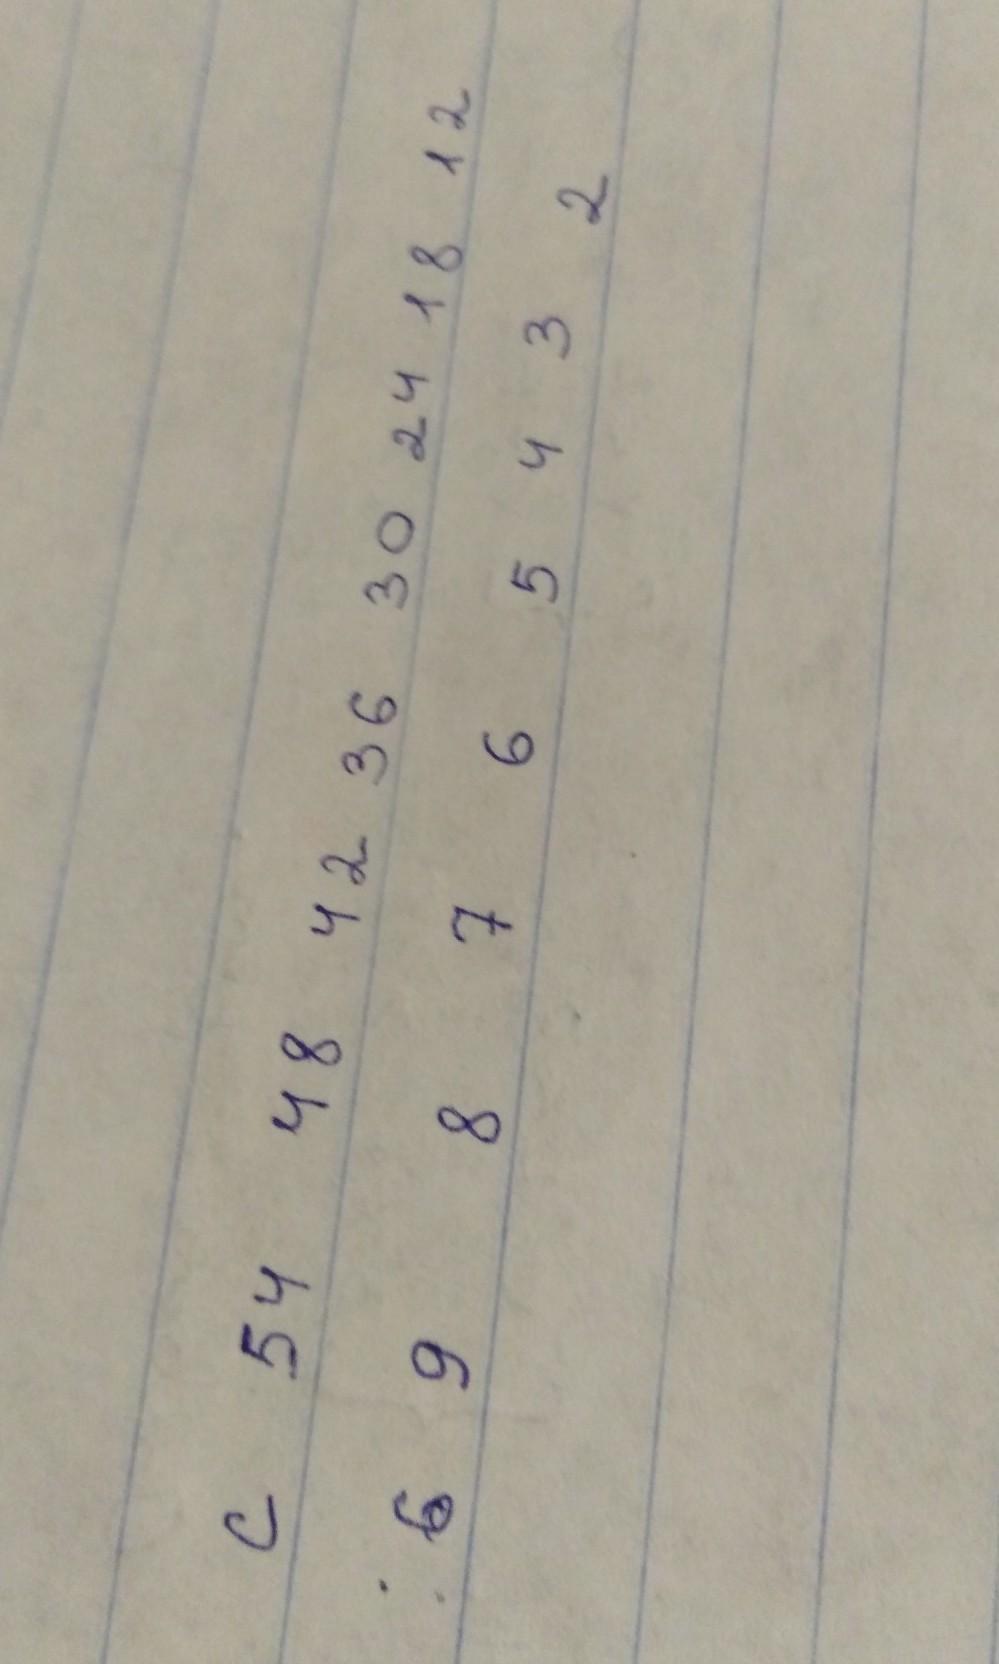 c 54 48 42 36 30 24 18 12
:6 9 8 7 6 5 4 3 2